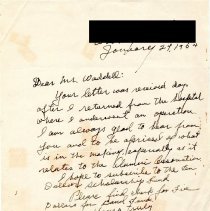 January 29, 1964
Dear Mr. Waddell:
Your letter was received day
after I returned from the Hospital
where I underwent an operation
I am always glad to hear from
you and to be apprised of what
is in the making, especially as it
relates to the Alumni Association
I hope to subscribe to the Ten
Dollars Scholarship fund.
Please find check for Five
Dollars for Band Fund.
Yours truly